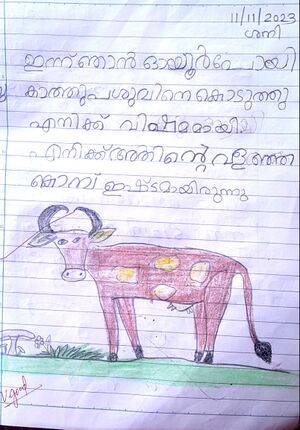 11/11/2023
ശനി
ഇന്ന് ഞാൻ ഓയൂർ പോയി
കാത്തുപശുവിനെ കൊടുത്തു
എനിക്ക് വിഷമമായി
എനിക്ക് അതിന്റെ വളഞ്ഞ
കൊമ്പ് ഇഷ്ടമായിരുന്നു
V.good